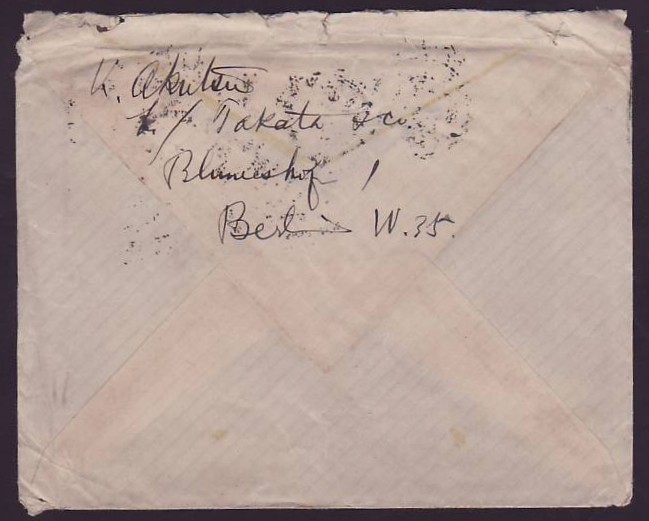 K. Akutsu
c/o Takata & Co.
Blumeshof 1
Berlin W. 35.